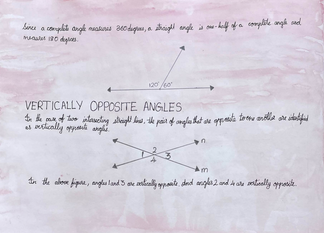 Since a complete angle measures 360 degrees, a straight angle is one-half of a complete angle and
measures 180 degrees.
120° 60°
VERTICALLY OPPOSITE ANGLES
In the case of two intersecting straight lines, the pair of angles that are opposite to one another are identified
as vertically opposite angles.
n
1 2 3
4
m
In the above figure, angles 1 and 3 are vertically opposite. And angles 2 and 4 are vertically opposite.